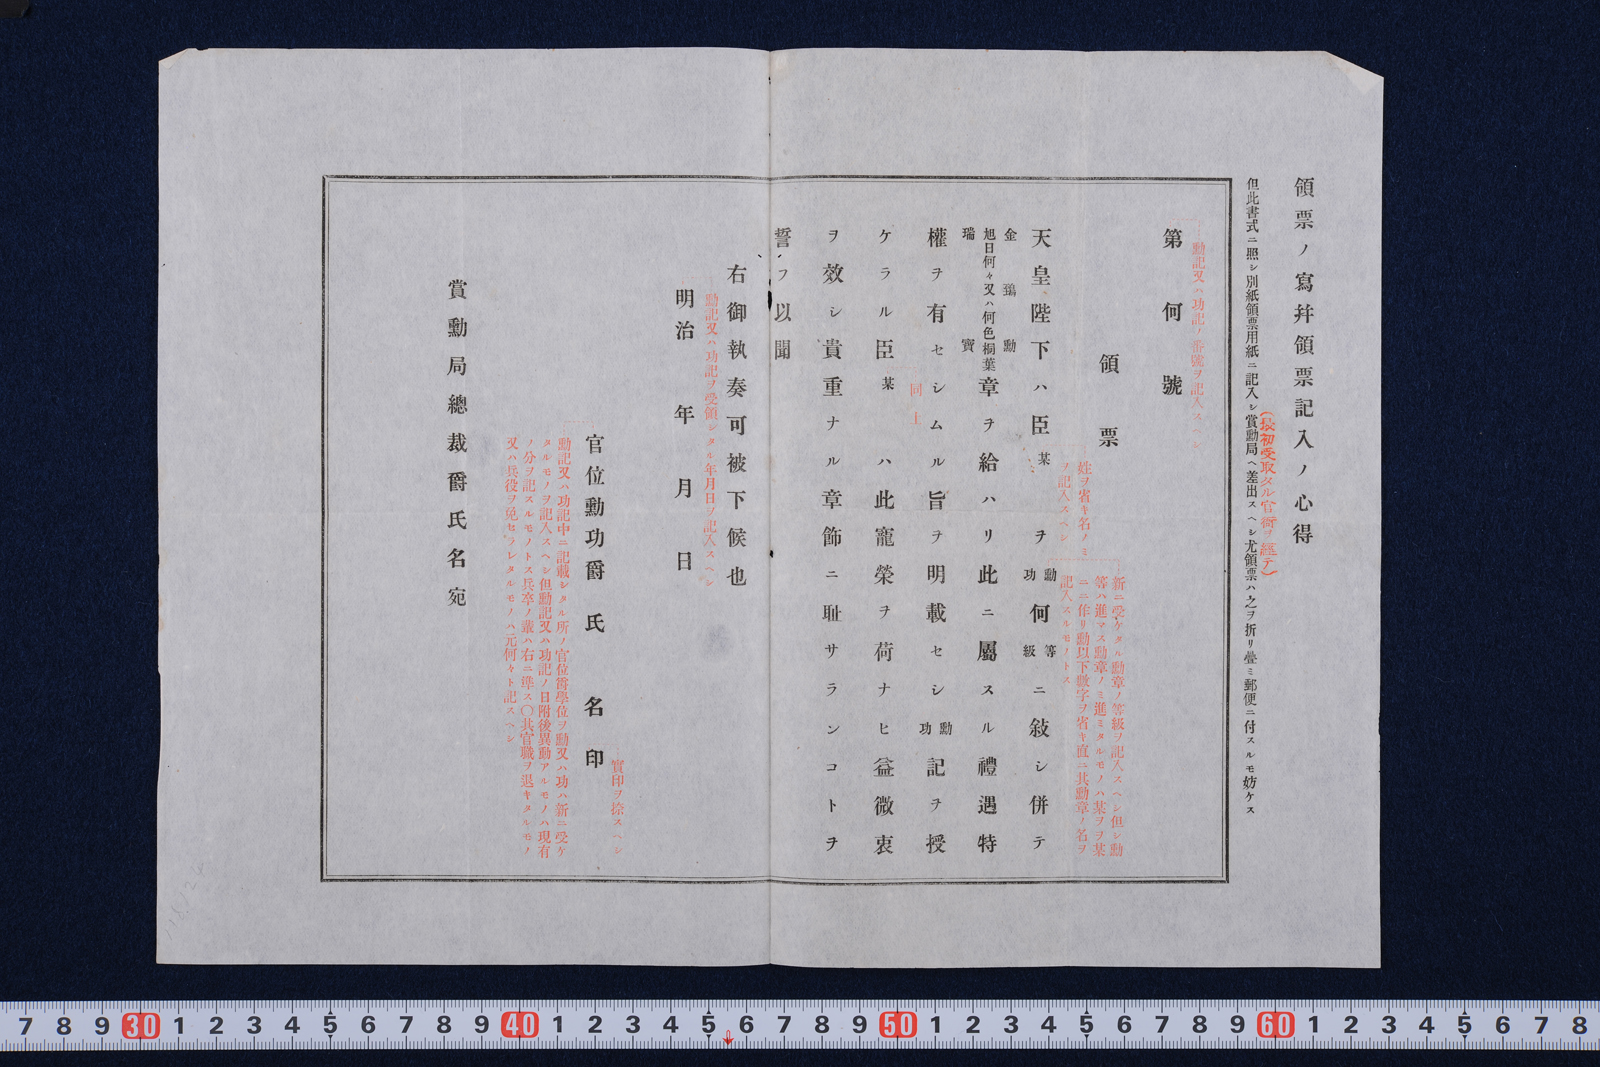 領票ノ寫幷領票記入ノ心得
(最初受取タル官衙ヲ經テ)
但此書式ニ照シ別紙領票用紙ニ記入シ賞勳局ヘ差出スヘシ尤領票ハ之ヲ折リ疊ミ郵便ニ付スルモ妨ケス
勳記又ハ功記ノ番號ヲ記入スヘシ
第何號
領票
新ニ受ケタル勳章ノ等級ヲ記入スヘシ但シ勳
等ハ進マス勳章ノミ進ミタルモノハ某ヲヲ某
ニニ作リ勳以下數字ヲ省キ直ニ其勳章ノ名ヲ
記入スルモノトス
姓ヲ省キ名ノミ
ヲ記入スヘシ
天皇陛下ハ臣某ヲ勳功何等級ニ敍シ併テ
金鵄勳
旭日何々又ハ何色桐葉章ヲ給ハリ此ニ屬スル禮遇特
瑞寶
權ヲ有セシムル旨ヲ明載セシ勳功記ヲ授
同上
ケラル臣某ハ此寵榮ヲ荷ナヒ益微衷
ヲ效シ貴重ナル章飾ニ耻サランコトヲ
誓フ以聞
右御執奏可被下候也
勳記又ハ功記ヲ受領シタル年月日ヲ記入スヘシ
明治年月日
實印ヲ捺スヘシ
官位勳功爵氏名印
勳記又ハ功記中ニ記載シタル所ノ官位爵學位ヲ勳又ハ功ハ新ニ受ケ
タルモノヲ記入スヘシ但勳記又ハ功記ノ日附後異動アルモノハ現有
ノ分ヲ記スルモノトス兵卒ノ輩ハ右ニ準ス〇其官職ヲ退キタルモノ
又ハ兵役ヲ免セラレタルモノハ元何々ト記スヘシ
賞勳局總裁爵氏名宛
7 8 9 30 1 2 3 4 5 6 7 8 9 40 1 2 3 4 5 6 7 8 9 50 1 2 3 4 5 6 7 8 9 60 1 2 3 4 5 6 7 8